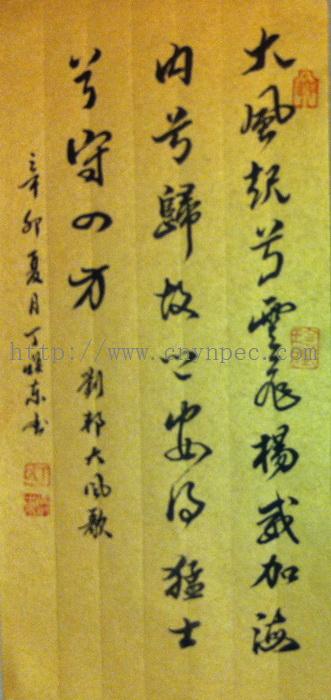 大風起兮雲飛楊威加海
内兮歸故里安得猛士
兮守四方
劉邦大风歌
辛卯夏月丁
东书
http://www.cnynpec.com